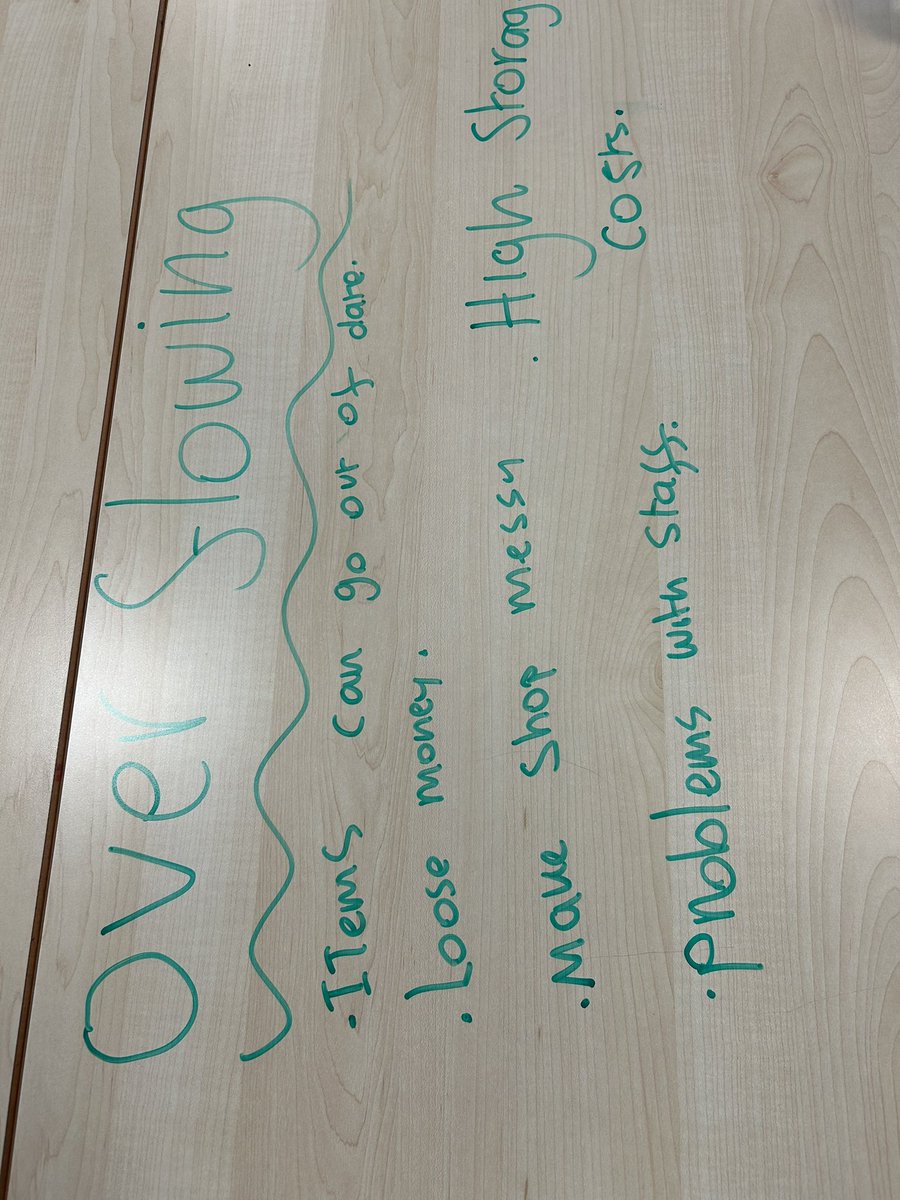 Over flowing
. Items can go out of date.
. Loose money.
. Make shop messy
. High Storag
costs.
. Problems with staff.